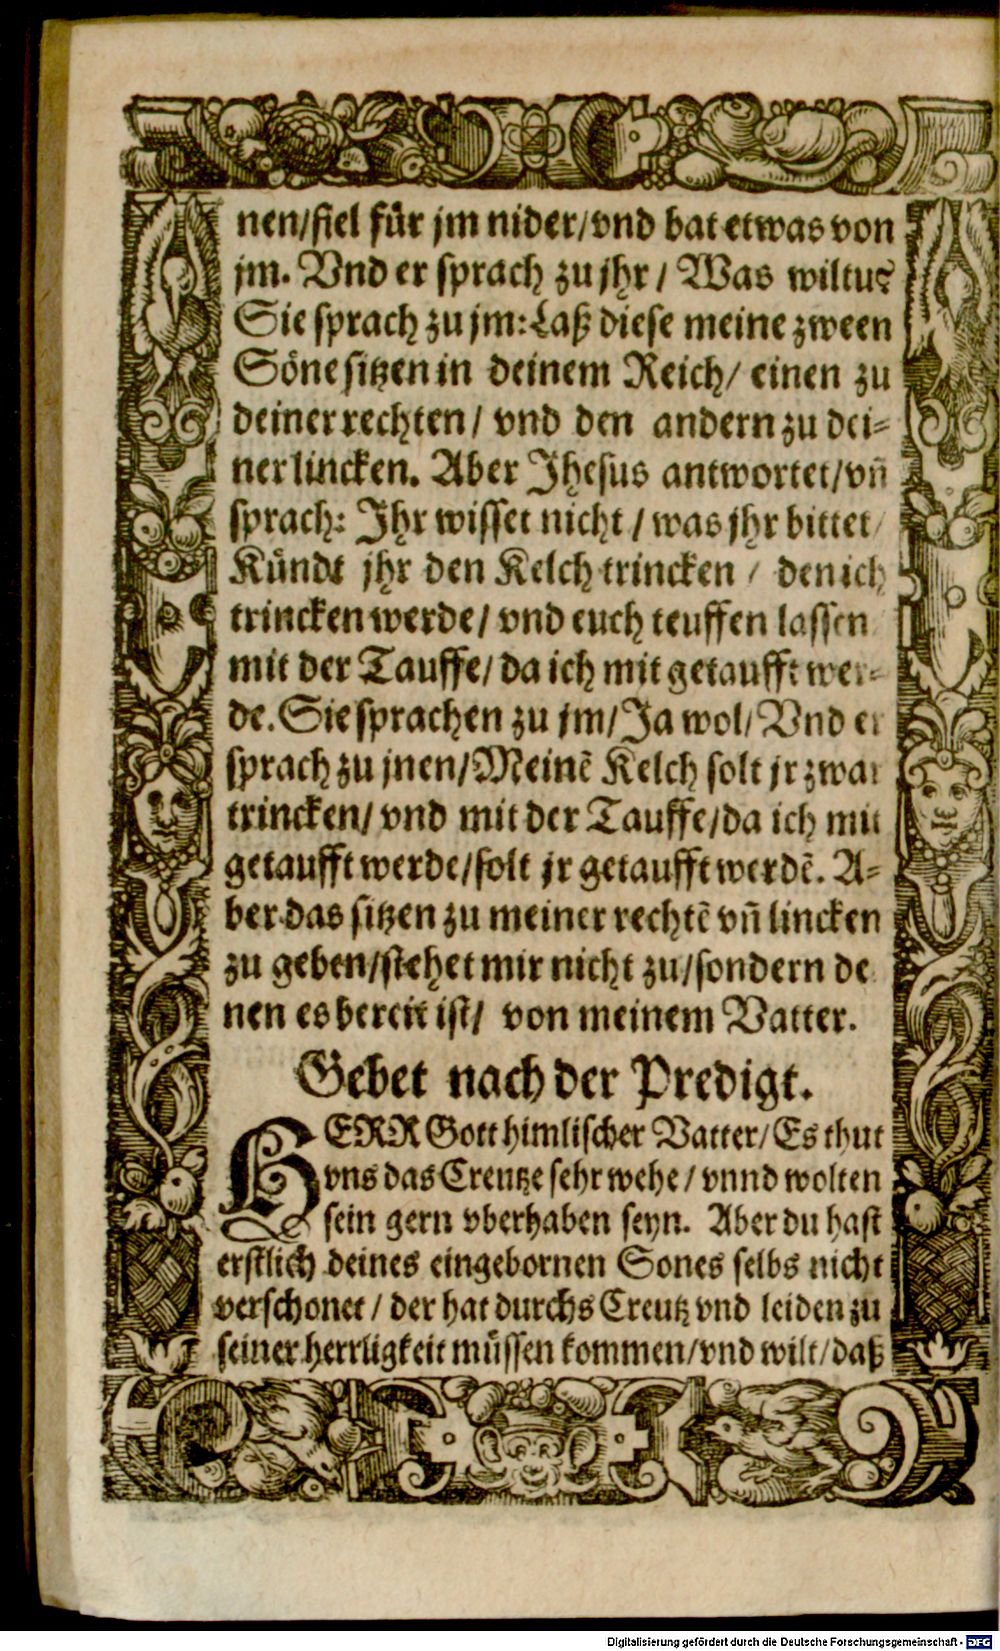 nen/fiel für jm nider/vnd bat etwas von
jm. Vnd er sprach zu jhr/ Was wiltu?
Sie sprach zu jm: Laß diese meine zween
Söne sitzen in deinem Reich/ einen zu
deiner rechten/ vnd den andern zu dei-
ner lincken. Aber Jhesus antwortet/vn̄
sprach: Jhr wisset nicht/ was jhr bittet/
Kündt jhr den Kelch trincken/ den ich
trincken werde/ vnd euch teuffen lassen
mit der Tauffe/ da ich mit getaufft wer-
de. Sie sprachen zu jm/Ja wol/Vnd er
sprach zu jnen/Meinē Kelch solt jr zwar
trincken/ vnd mit der Tauffe/da ich mit
getaufft werde/solt jr getaufft werdē. A-
ber das sitzen zu meiner rechtē vn̄ lincken
zu geben/stehet mir nicht zu/sondern de
nen es bereit ist/ von meinem Vatter.
Gebet nach der Predigt.
HERR Gott himlischer Vatter/Es thut
vns das Creutze sehr wehe/ vnnd wolten
sein gern vberhaben seyn. Aber du hast
erstlich deines eingebornen Sones selbs nicht
verschonet/ der hat durchs Creutz vnd leiden zu
seiner herrligkeit müssen kommen/vnd wilt/daß
Digitalisierung gefördert durch die Deutsche Forschungsgemeinschaft - DFG